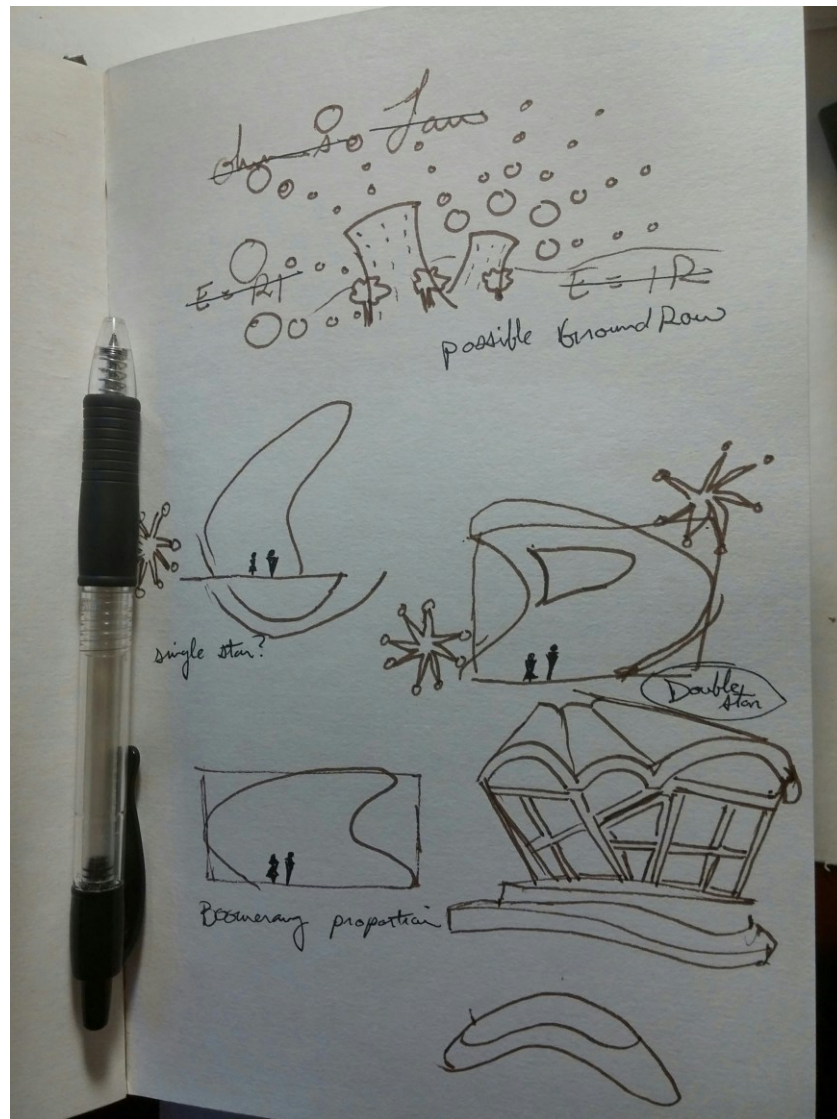 ohm's Law
E = RI
E = IR
possible Ground Row
single star?
Double
star
Boomerang proportion